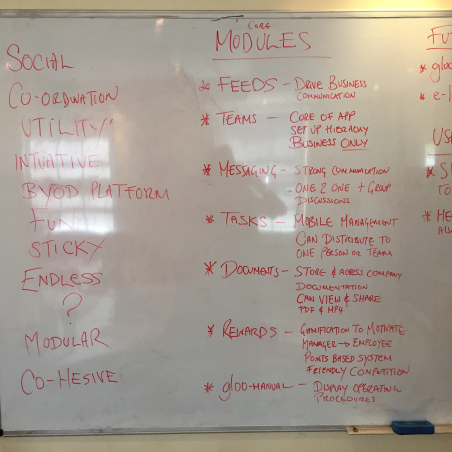 SOCIAL
CO-ORDINATION
UTILITY
INTUATIVE
BYOD PLATFORM
FUN
STICKY
ENDLESS
?
MODULAR
CO-HESIVE
CORE
MODULES
* FEEDS - DRIVE BUSINESS
COMMUNICATION
* TEAMS - CORE OF APP
SET UP HIERACHY
BUSINESS ONLY
* MESSAGING - STRONG COMMUNICATION
ONE 2 ONE + GROUP
DISCUSSIONS
* TASKS - MOBILE MANAGEMENT
CAN DISTRIBUTE TO
ONE PERSON OR TEAM
* DOCUMENTS - STORE & ACCESS COMPANY
DOCUMENTATION
CAN VIEW & SHARE
PDF & MP4
* REWARDS - GAMIFICATION TO MOTIVATE
MANAGER → EMPLOYEE
POINTS BASED SYSTEM
FRIENDLY COMPETITION
* gloo-MANUAL - DISPLAY OPERATING
PROCEDURES
FU
* gloo
* e-l
US
* S
TO
* HE